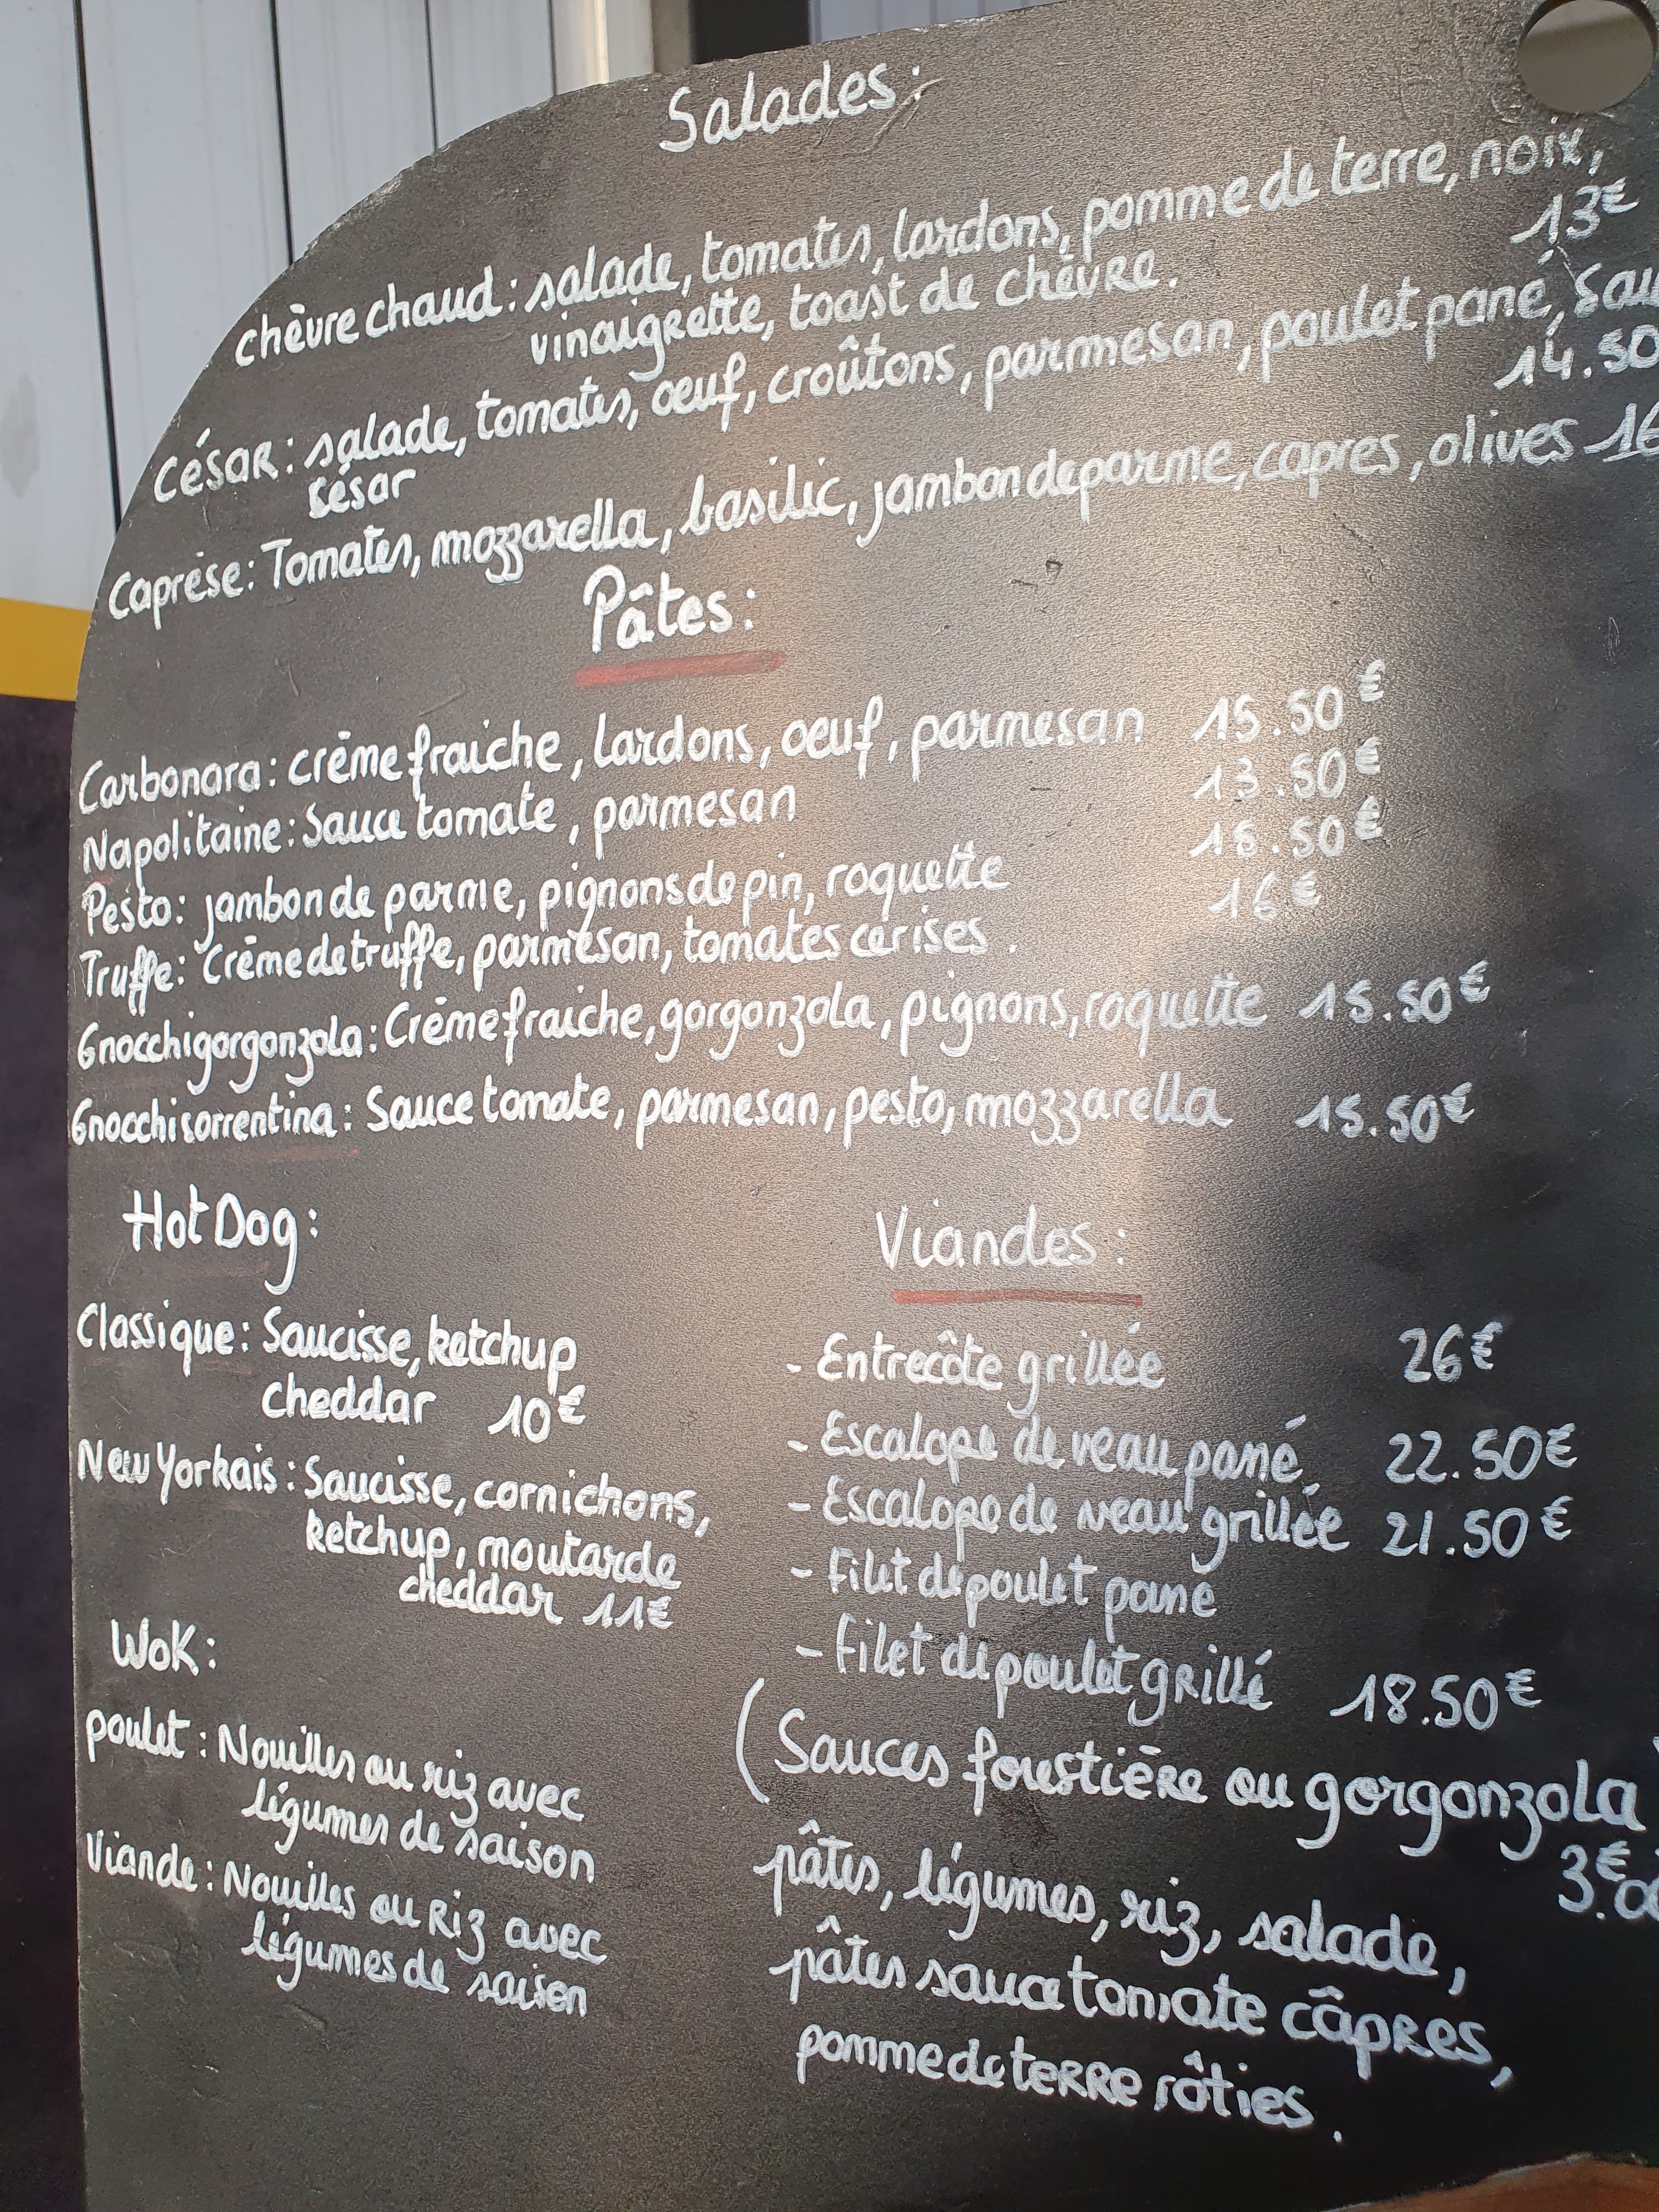 Salades:
chèvre chaud: salade, tomates, lardons, pomme de terre, noix,
vinaigrette, toast de chèvre. 13€
César: salade, tomates, oeuf, croûtons, parmesan, poulet pané,
césar 14.50
Caprése: Tomates, mozzarella, basilic, jambon de parme, capres, olives 16
Pâtes:
Carbonara: crème fraiche, lardons, oeuf, parmesan 15.50€
Napolitaine: Sauce tomate, parmesan 13.50€
Pesto: jambon de parme, pignons de pin, roquette .50€
Truffe: Crème de truffe, parmesan, tomates cerises. 16€
Gnocchi gorgonzola: Crème fraiche, gorgonzola, pignons, roquette 15.50€
Gnocchi sorrentina: Sauce tomate, parmesan, pesto, mozzarella 15.50€
Hot Dog:
Classique: Saucisse, ketchup
cheddar 10€
New Yorkais: Saucisse, cornichons,
ketchup, moutarde
cheddar 11€
Wok:
poulet: Nouilles ou riz avec
légumes de saison
Viande: Nouilles ou Riz avec
légumes de saison
Viandes:
- Entrecôte grillée 26€
- Escalope de veau pané 22.50€
- Escalope de veau grillée 21.50€
- Filet de poulet pané
- Filet de poulet grillé 18.50€
(Sauces forestière ou gorgonzola
3€
pâtes, légumes, riz, salade,
pâtes sauce tomate câpres,
pomme de terre rôties.